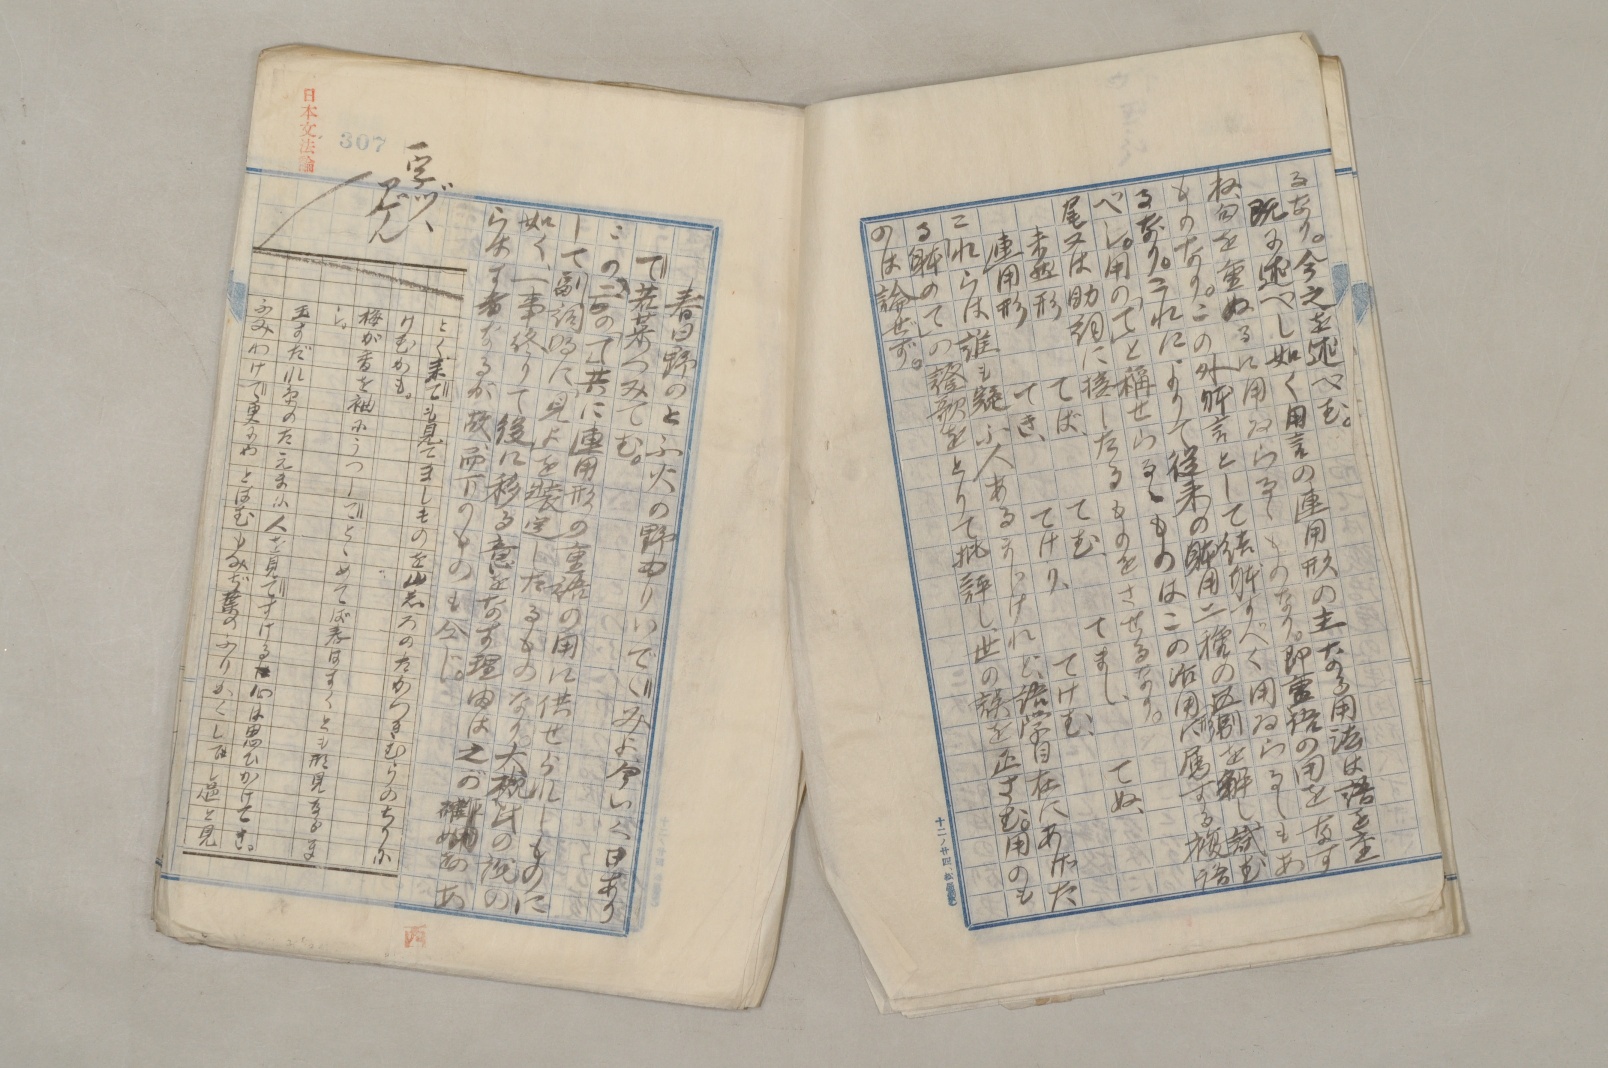 るなり。今之を述べむ。
既に述べし如く用言の連用形の主なる用法は語を重
ね句を重ぬるに用ゐらるゝものなり。即重語の用をなす
ものなり。この外体言として結体すべく用ゐらるゝもあ
るなり。これによりて従来の体用二種の区別を解し試む
べし。用のてと称せらるゝものはこの活用に属する複語
尾又は助詞に接したるものをさせるなり。
未然形 てば、 てむ、 てまし、 てぬ、
連用形 てき、 てけり、 てけむ、
これらは誰も疑ふ人あるうじけれど語学自在にあげた
る体のての證歌をとりて批評し世の誤を正さむ。用のも
のは論ぜず。
十二ノ廿四
日本文法論
307
一字ヅヽ
春日野のとふ火の野守りいでゝみよ今いく日あり
て若菜つみてむ。
この二のて共に連用形の重語の用に供せられしものに
して副詞的に見よを装定したるものなり。大槻氏の説の
如く、一事終りて後に移る意をなす理由は之の
らはす者なるが故、而下のものも今じ。
とく来ても見てましものを山しろのたかつきむらのちりに
けむかも。
梅が香を袖にうつしてとゞめてば春はすぐとも形見なるま
し。
玉すだれ糸のたえまに人を見てすける心は思ひかけてき。
ふみわけて更にやとはむもみぢ葉のふりかくしてし道と見
西